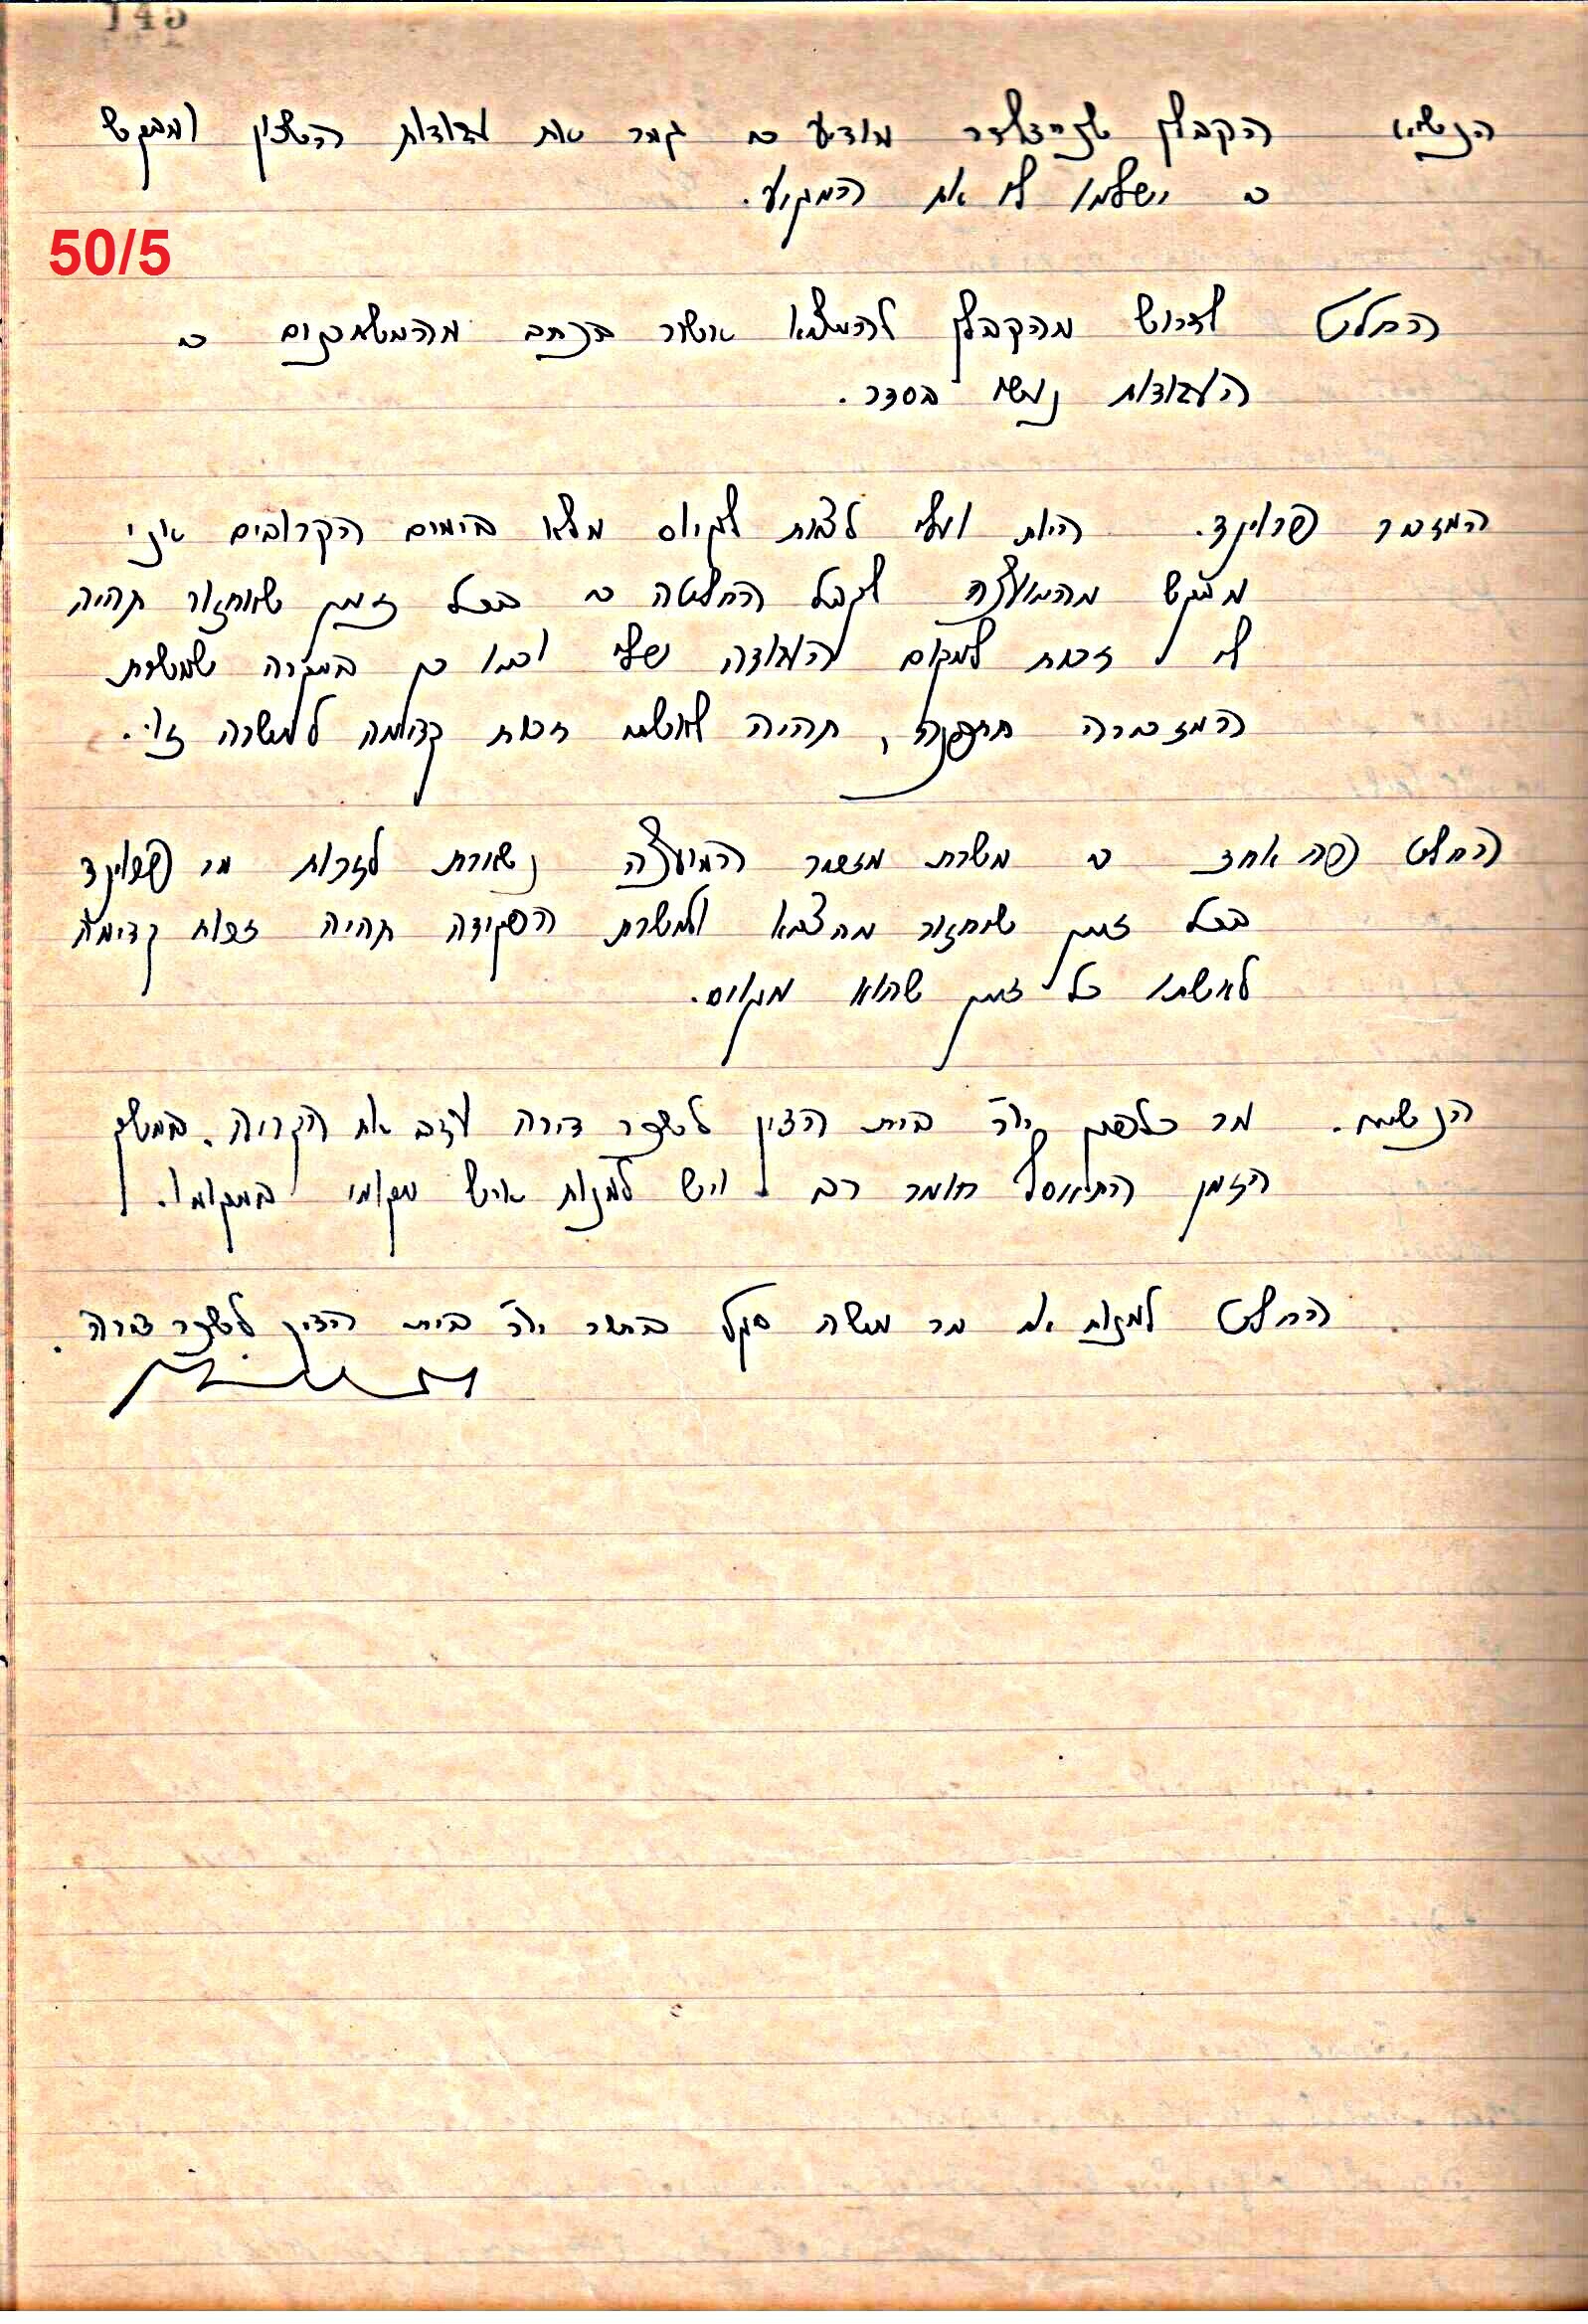 145
הנשיא הקבלן שניידלר מודיע כי גמר את עבודות השכון ומבקש
כי ישלמו לו את המגיע.
50/5
החלט לדרוש מהקבלן להמציא אשור בכתב מהמשתכנים כי
העבודות נעשו בסדר.
המזכיר פרוינד. היות ועלי לצאת לגיוס מלא בימים הקרובים אני
מבקש מהמועצה לקבל החלטה כי בכל זמן שאחזור תהיה
לי זכות למקום העבודה שלי וכמו כן במקרה שמשרת
המזכירה תתפנה, תהיה לאשתי זכות קדימה למשרה זו.
הוחלט פה אחד כי משרת מזכיר המועצה נשארת לזכות מר פרוינד
בכל זמן שיחזור מהצבא ולמשרת הפקידה תהיה זכות קדימה
לאשתו כל זמן שהוא מגויס.
הנשיא. מר כלפון יו"ר בית הדין לשכר דירה עזב את הקריה. במשך
הזמן התאסף חומר רב ויש למנות איש מקומו במקומו.
הוחלט למנות את מר משה סגל בתור יו"ר בית הדין לשכר דירה.